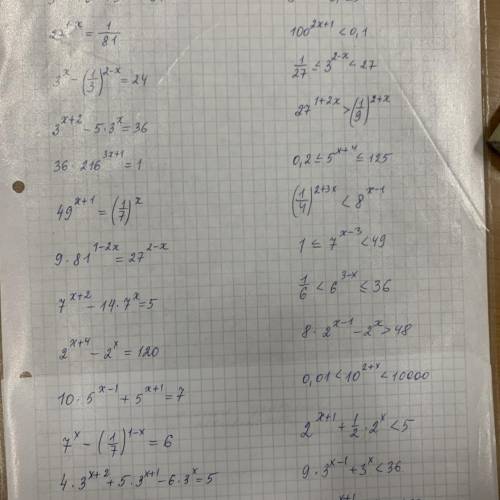 27^(1-x) = 1/81
3^x - (1/3)^(2-x) = 24
3^(x+2) - 5·3^x = 36
36·216^(3x+1) = 1
49^(x+1) = (1/7)^x
9·81^(1-2x) = 27^(2-x)
7^(x+2) - 14·7^x = 5
2^(x+4) - 2^x = 120
10·5^(x-1) + 5^(x+1) = 7
7^x - (1/7)^(1-x) = 6
4·3^(x+2) + 5·3^(x+1) - 6·3^x = 5
100^(2x+1) < 0,1
1/27 ≤ 3^(2-x) < 27
27^(1+2x) > (1/9)^(2+x)
0,2 ≤ 5^(x+4) ≤ 125
(1/4)^(2+3x) < 8^(x-1)
1 ≤ 7^(x-3) < 49
1/6 < 6^(3-x) ≤ 36
8·2^(x-1) - 2^x > 48
0,01 < 10^(2+x) < 10000
2^(x+1) + 1/2·2^x < 5
9·3^(x-1) + 3^x < 36